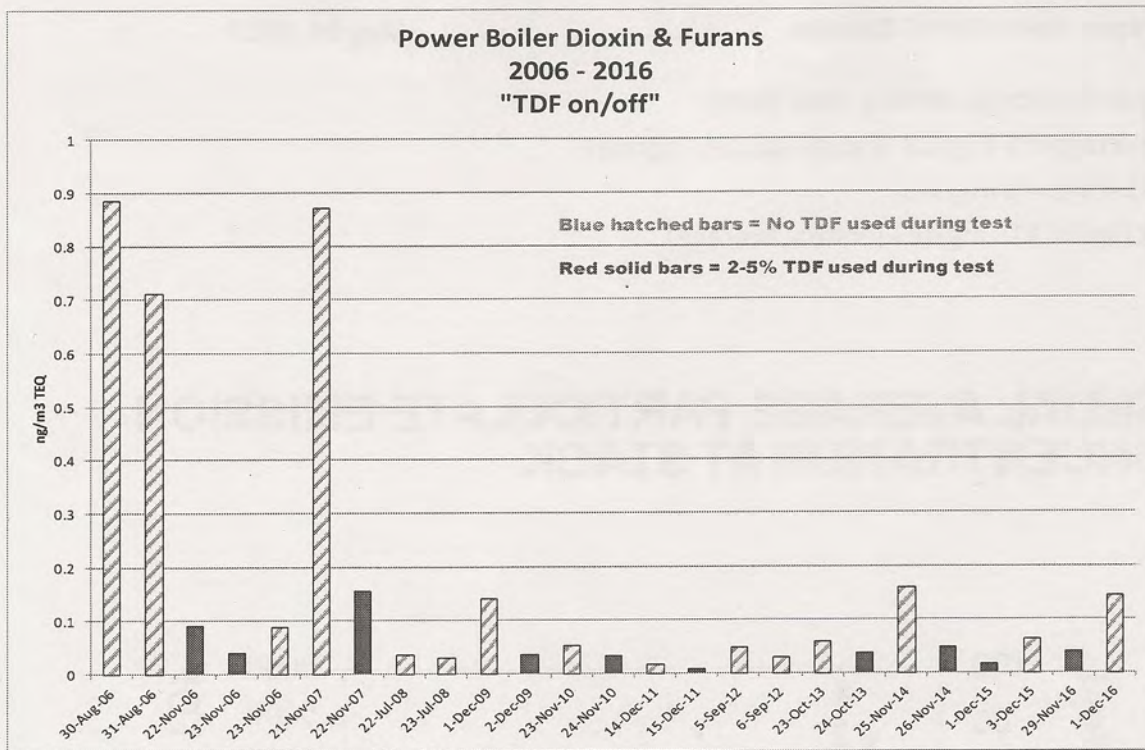 Power Boiler Dioxin & Furans
2006 - 2016
"TDF on/off"
1
0.9
0.8
0.7
0.6
0.5
0.4
0.3
0.2
0.1
0
ng/m3 TEQ
Blue hatched bars = No TDF used during test
Red solid bars = 2-5% TDF used during test
30-Aug-06
31-Aug-06
22-Nov-06
23-Nov-06
23-Nov-06
21-Nov-07
22-Nov-07
22-Jul-08
23-Jul-08
1-Dec-09
2-Dec-09
23-Nov-10
24-Nov-10
14-Dec-11
15-Dec-11
5-Sep-12
6-Sep-12
23-Oct-13
24-Oct-13
25-Nov-14
26-Nov-14
1-Dec-15
3-Dec-15
29-Nov-16
1-Dec-16